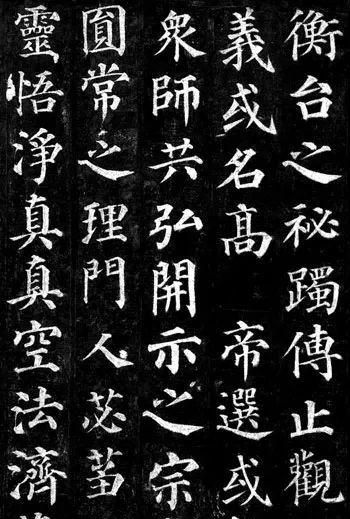 衡台之祕躅傳止觀
義或名高　帝選或
衆師共弘開示之宗
圓常之理門人苾蒭
靈悟淨真真空法濟